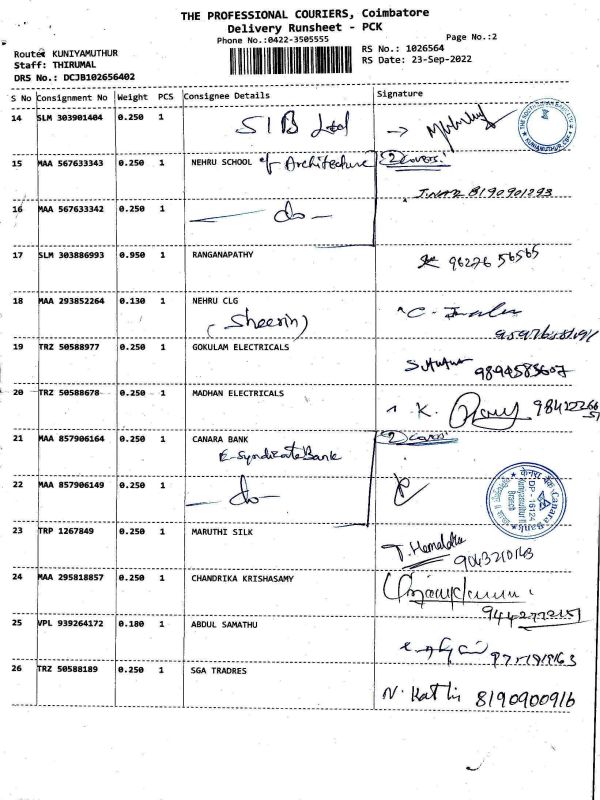 THE PROFESSIONAL COURIERS, Coimbatore
Delivery Runsheet - PCK
Phone No.:0422-3505555
Page No.:2
Route: KUNIYAMUTHUR
RS No.: 1026564
Staff: THIRUMAL
RS Date: 23-Sep-2022
DRS No.: DCJB102656402
S No Consignment No Weight PCS Consignee Details Signature
14 SLM 303901404 0.250 1 SIB Ltd
15 MAA 567633343 0.250 1 NEHRU SCHOOL of Architecture (2) covers.
8190901293
16 MAA 567633342 0.250 1 — do —
17 SLM 303886993 0.950 1 RANGANAPATHY 96276 56565
18 MAA 293852264 0.130 1 NEHRU CLG
(Sheerin)
19 TRZ 50588977 0.250 1 GOKULAM ELECTRICALS
9894583607
20 TRZ 50588678 0.250 1 MADHAN ELECTRICALS K.
21 MAA 857906164 0.250 1 CANARA BANK (2) covers
E-Syndicate Bank
22 MAA 857906149 0.250 1 — do —
23 TRP 1267849 0.250 1 MARUTHI SILK T. Hemalatha
9043210143
24 MAA 295818857 0.250 1 CHANDRIKA KRISHASAMY
25 VPL 939264172 0.180 1 ABDUL SAMATHU
26 TRZ 50588189 0.250 1 SGA TRADRES N. Kathi 8190900916